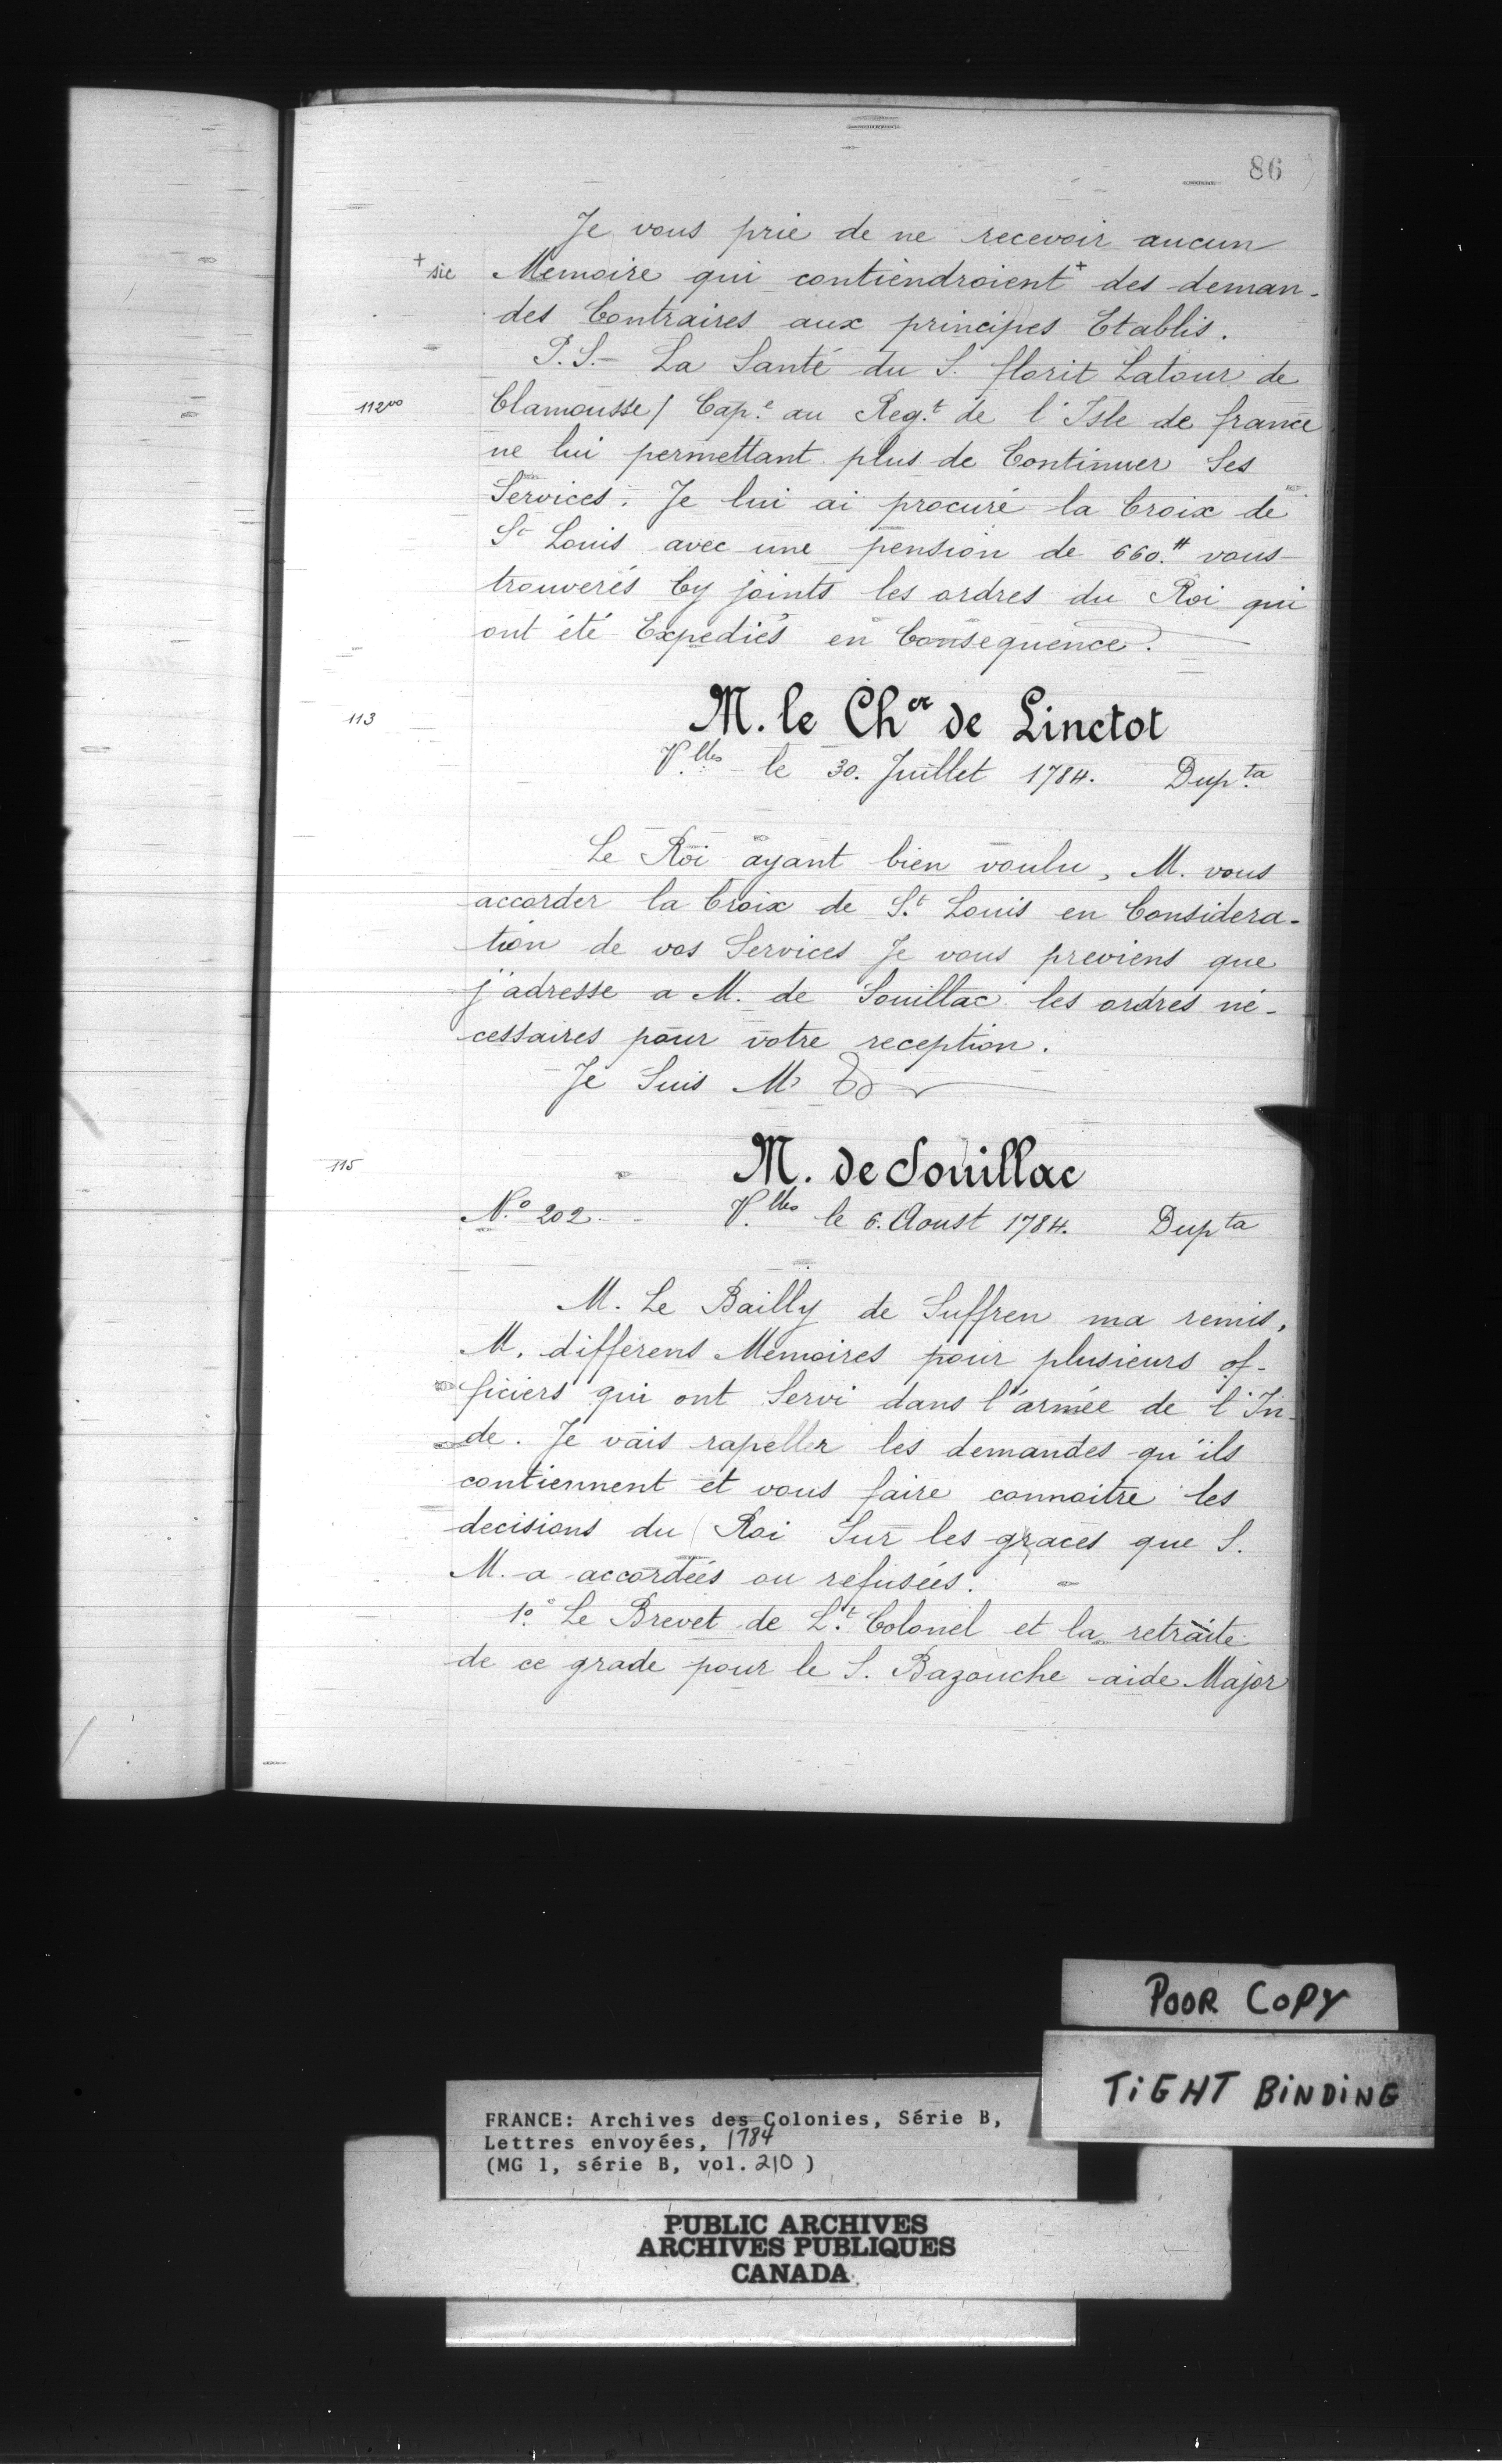 86
Je vous prie de ne recevoir aucun
+ sic Memoire qui contiendroient + des deman-
des Contraires aux principes Etablis.
P.S.- La Santé du S. florit Latour de
112vo Clamousse / Cap.e au Reg.t de l'Isle de france
ne lui permettant plus de Continuer Ses
Services. Je lui ai procuré la Croix de
St Louis avec une pension de 660.# vous
trouverés Cy joints les ordres du Roi qui
ont été Expediés en Consequence.
113 M. le Cher de Linctot
V.lles le 30. Juillet 1784. Dup.ta
Le Roi ayant bien voulu, M. vous
accorder la Croix de S.t Louis en Considera-
tion de vos Services Je vous previens que
j'adresse a M. de Souillac les ordres né-
cessaires pour votre reception.
Je Suis M
115 M. de Souillac
N.o 202. V.lles le 6. Aoust 1784. Dupta
M. Le Bailly de Suffren ma remis,
M. differens Memoires pour plusieurs of-
ficiers qui ont Servi dans l'armée de l'In-
de. Je vais rapeller les demandes qu'ils
contiennent et vous faire connoitre les
decisions du Roi Sur les graces que S.
M. a accordées ou refusées.
1o. Le Brevet de L.t Colonel et la retraite
de ce grade pour le S. Bazouche aide Major
POOR COPY
TIGHT BINDING
FRANCE: Archives des Colonies, Série B,
Lettres envoyées, 1784
(MG 1, série B, vol. 210 )
PUBLIC ARCHIVES
ARCHIVES PUBLIQUES
CANADA